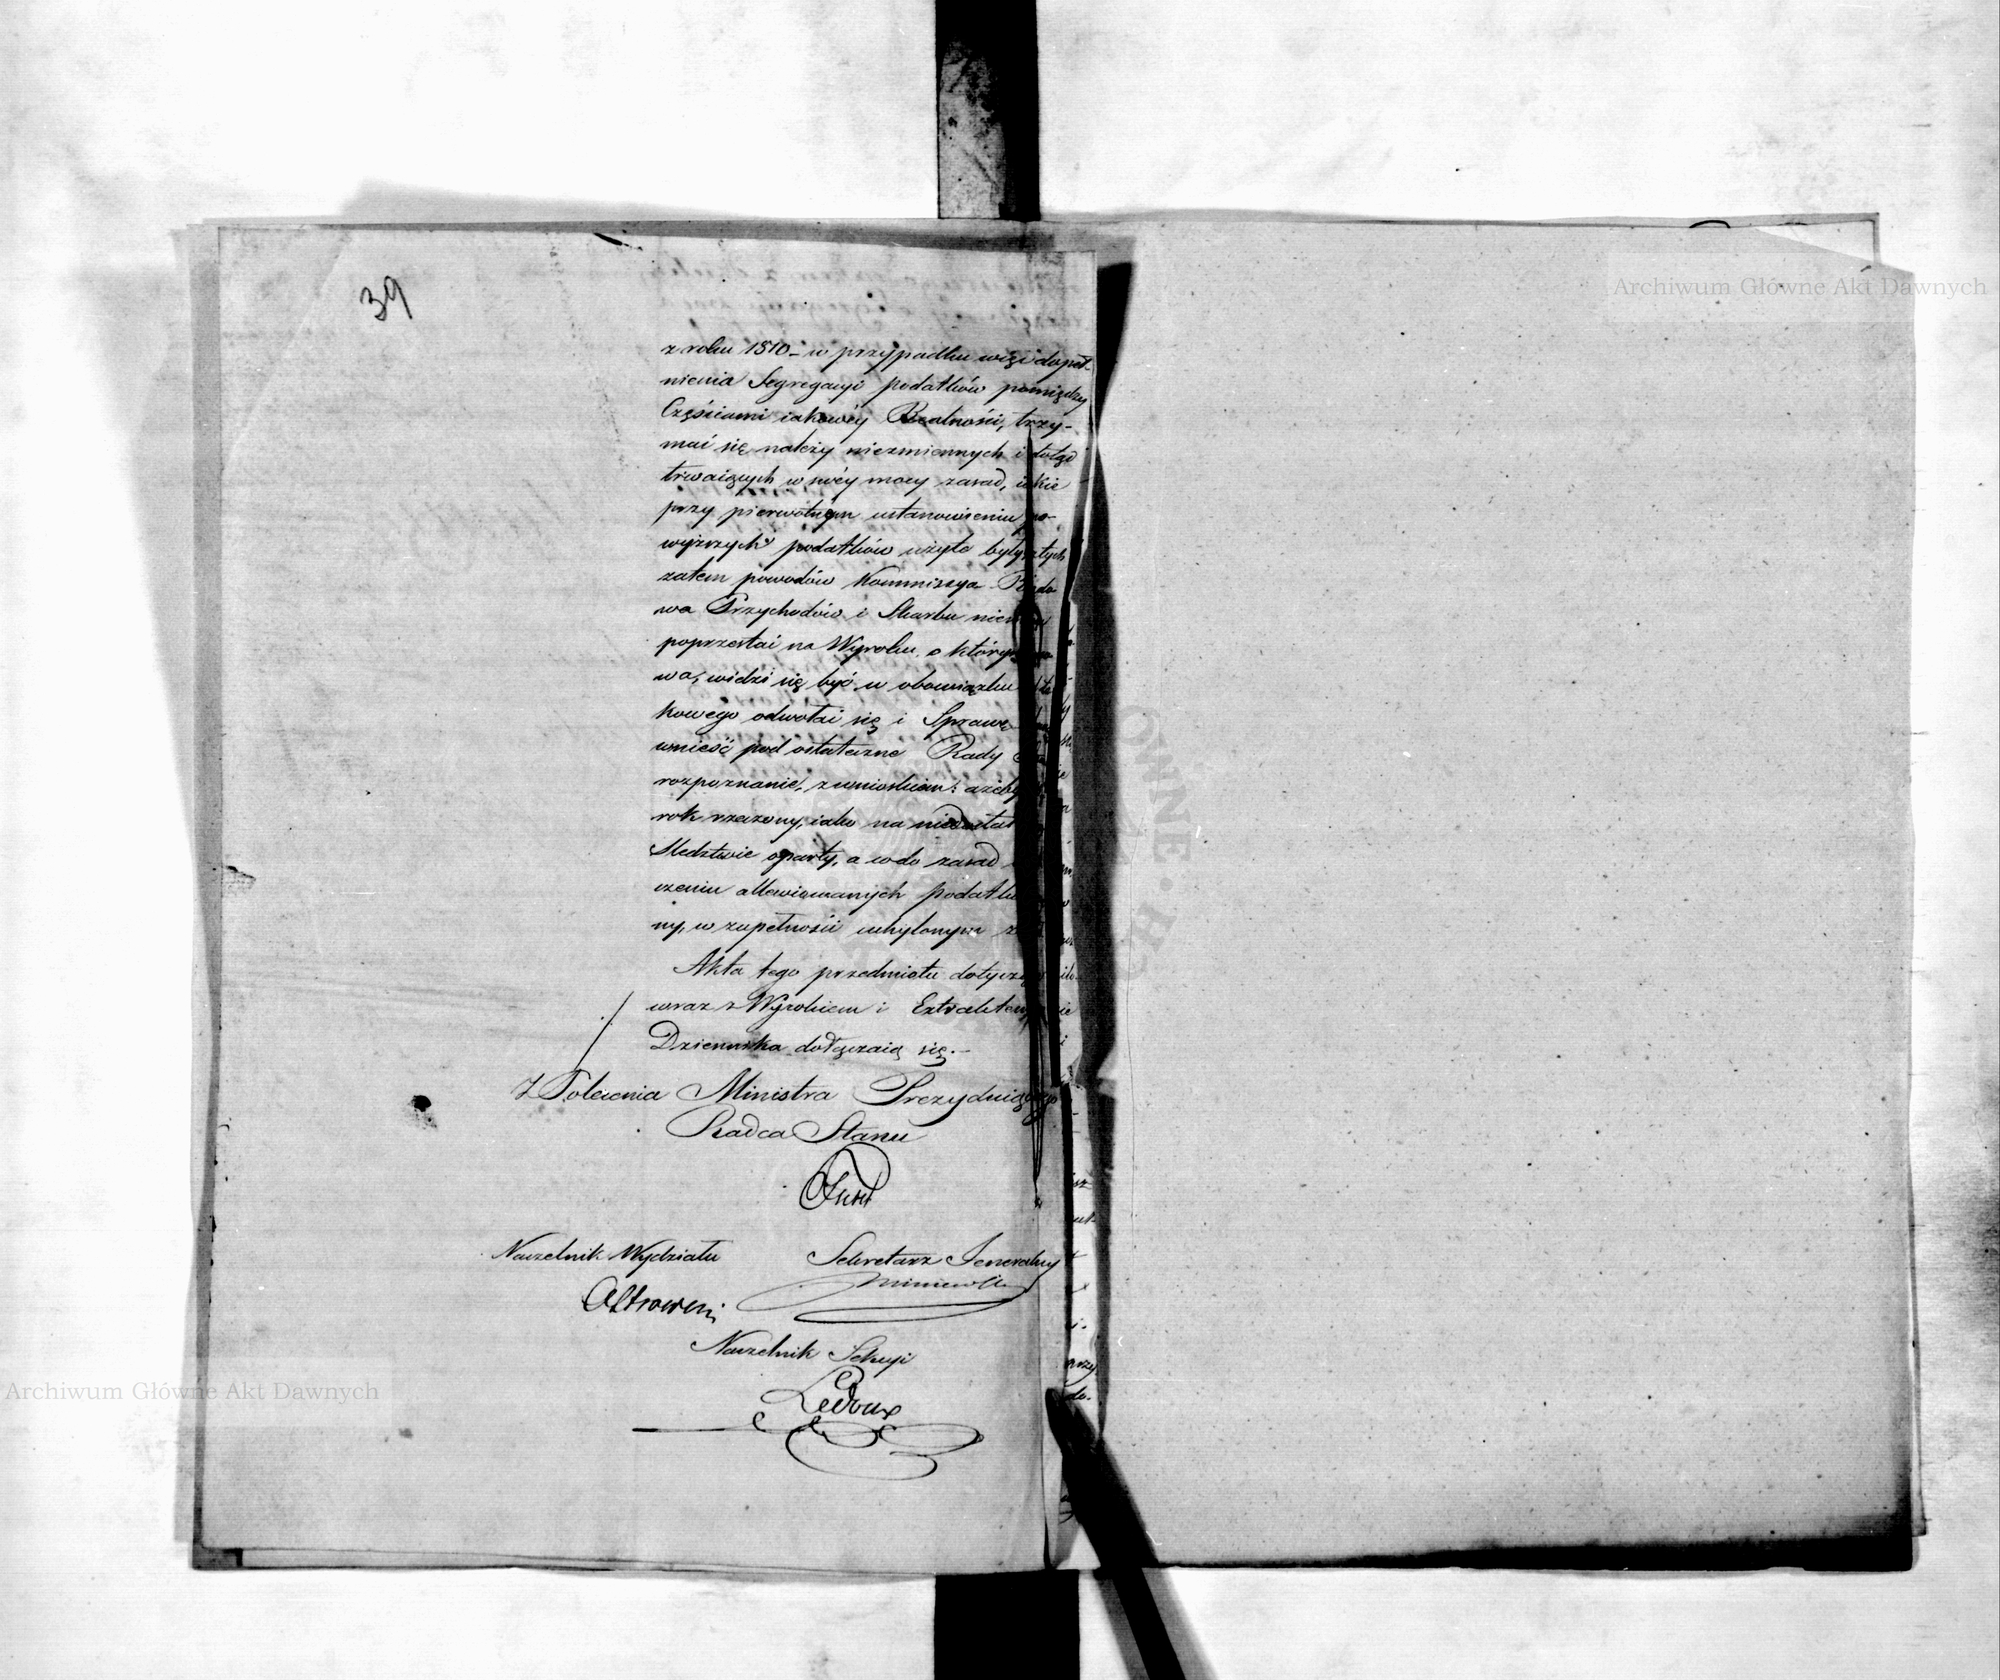 39
z roku 1810 – w przypadku więc dopeł-
nienia Segregacyi podatków pomiędzy
Częściami iakowéy Realności, trzy-
mać się należy niezmiennych i dotąd
trwaiących w swéy mocy zasad, iakie
przy pierwotnym ustanowieniu po-
wyższych podatków użyte były, z tych
zatem powodów Kommissya Rządo
wa Przychodów i Skarbu nie
poprzestać na Wyroku, o którym
wa, widzi się być w obowiązku
kowego odwołać się i Sprawę
wnieść pod ostateczne Rady
rozpoznanie, z wnioskiem: ażeby
rok rzeczony, iako na niedosta
Śledztwie oparty, a co do zasad
czeniu allewiowanych podatku
ny, w zupełności uchylonym
Akta tego przedmiotu dotycz
wraz z Wyrokiem i Extraktem
Dziennika dołączaią się. –
Z Polecenia Ministra Prezyduiącego
Radca Stanu
Naczelnik Wydziału Sekretarz Jeneralny
Naczelnik Sekcyi
Ledoux
Archiwum Główne Akt Dawnych
Archiwum Główne Akt Dawnych